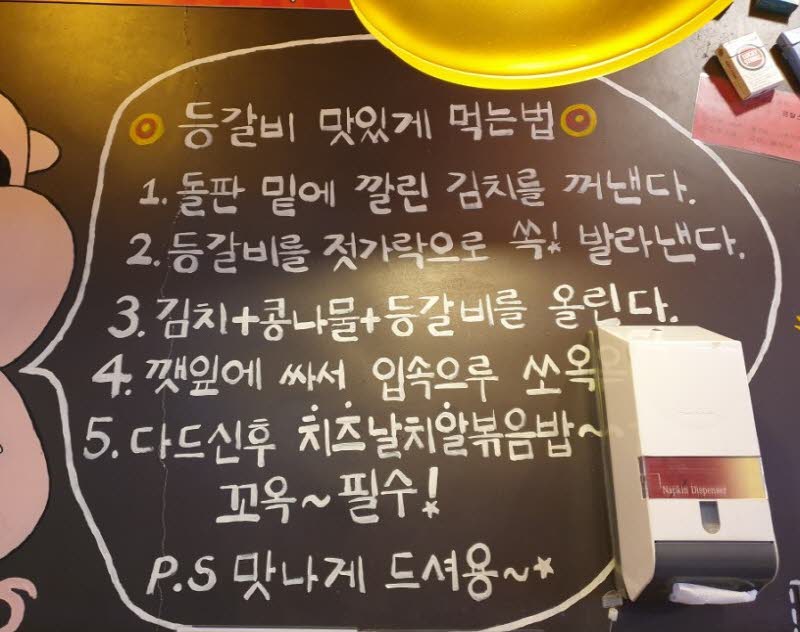 등갈비 맛있게 먹는법
1. 돌판 밑에 깔린 김치를 꺼낸다.
2. 등갈비를 젓가락으로 쏙! 발라낸다.
3. 김치+콩나물+등갈비를 올린다.
4. 깻잎에 싸서 입속으루 쏘옥
5. 다드신후 치즈날치알볶음밥~
꼬옥~필수!
P.S 맛나게 드셔용~
Napkin Dispenser